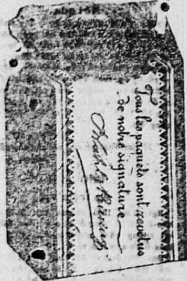 Tous les produits sont revêtus
de notre signature